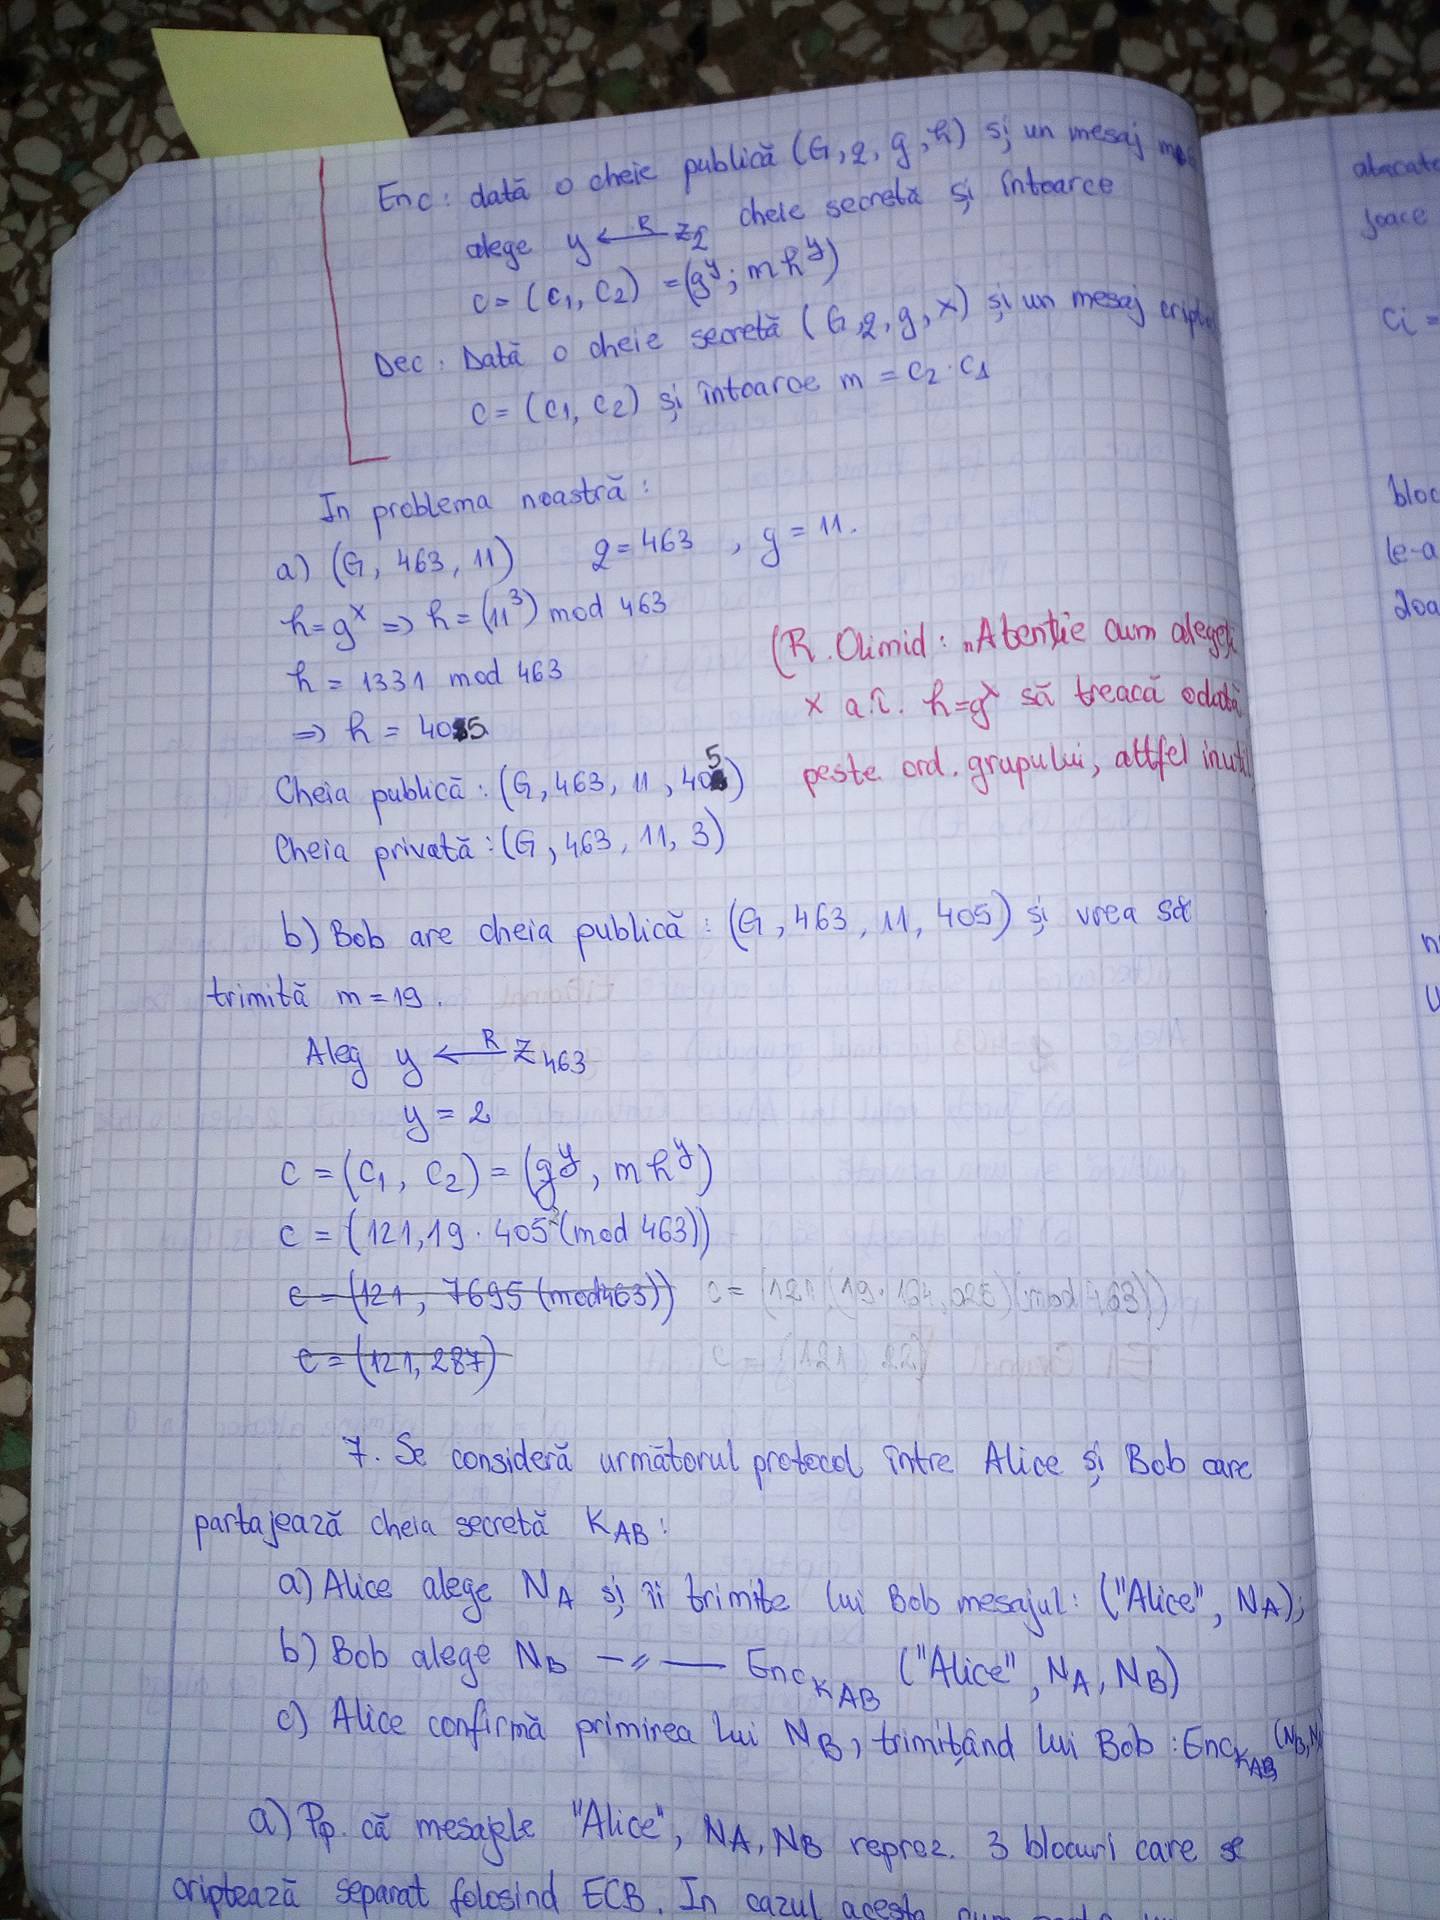 Enc: dată o cheie publică (G, q, g, h) și un mesaj
alege y ←R— Z₂ cheie secretă și întoarce
c = (c₁, c₂) = (g^y; m h^y)
Dec: Dată o cheie secretă (G, q, g, x) și un mesaj cripta
c = (c₁, c₂) și întoarce m = c₂ · c₁
In problema noastră:
a) (G, 463, 11) q = 463 , g = 11.
h = g^x => h = (11³) mod 463
h = 1331 mod 463
=> h = 405
(R. Olimid: „Atenție cum alegeți
x a.î. h=g^x să treacă odată
peste ord. grupului, altfel inutil
Cheia publică: (G, 463, 11, 405)
Cheia privată: (G, 463, 11, 3)
b) Bob are cheia publică: (G, 463, 11, 405) și vrea să
trimită m = 19.
Aleg y ←R— Z₄₆₃
y = 2
c = (c₁, c₂) = (g^y, m h^y)
c = (121, 19 · 405² (mod 463))
c = (121, 7695 (mod 463)) c = (121, (19 · 164,025) (mod 463))
c = (121, 287) c = (121, 22)
7. Se consideră următorul protocol între Alice și Bob care
partajează cheia secretă K_AB:
a) Alice alege N_A și îi trimite lui Bob mesajul: ("Alice", N_A);
b) Bob alege N_B —〃— Enc_K_AB ("Alice", N_A, N_B)
c) Alice confirmă primirea lui N_B, trimițând lui Bob: Enc_K_AB (N_B, N
a) Pp. că mesajele "Alice", N_A, N_B reprez. 3 blocuri care se
criptează separat folosind ECB. In cazul acesta cum
abacate
joace
ci =
bloc
le-a
doa